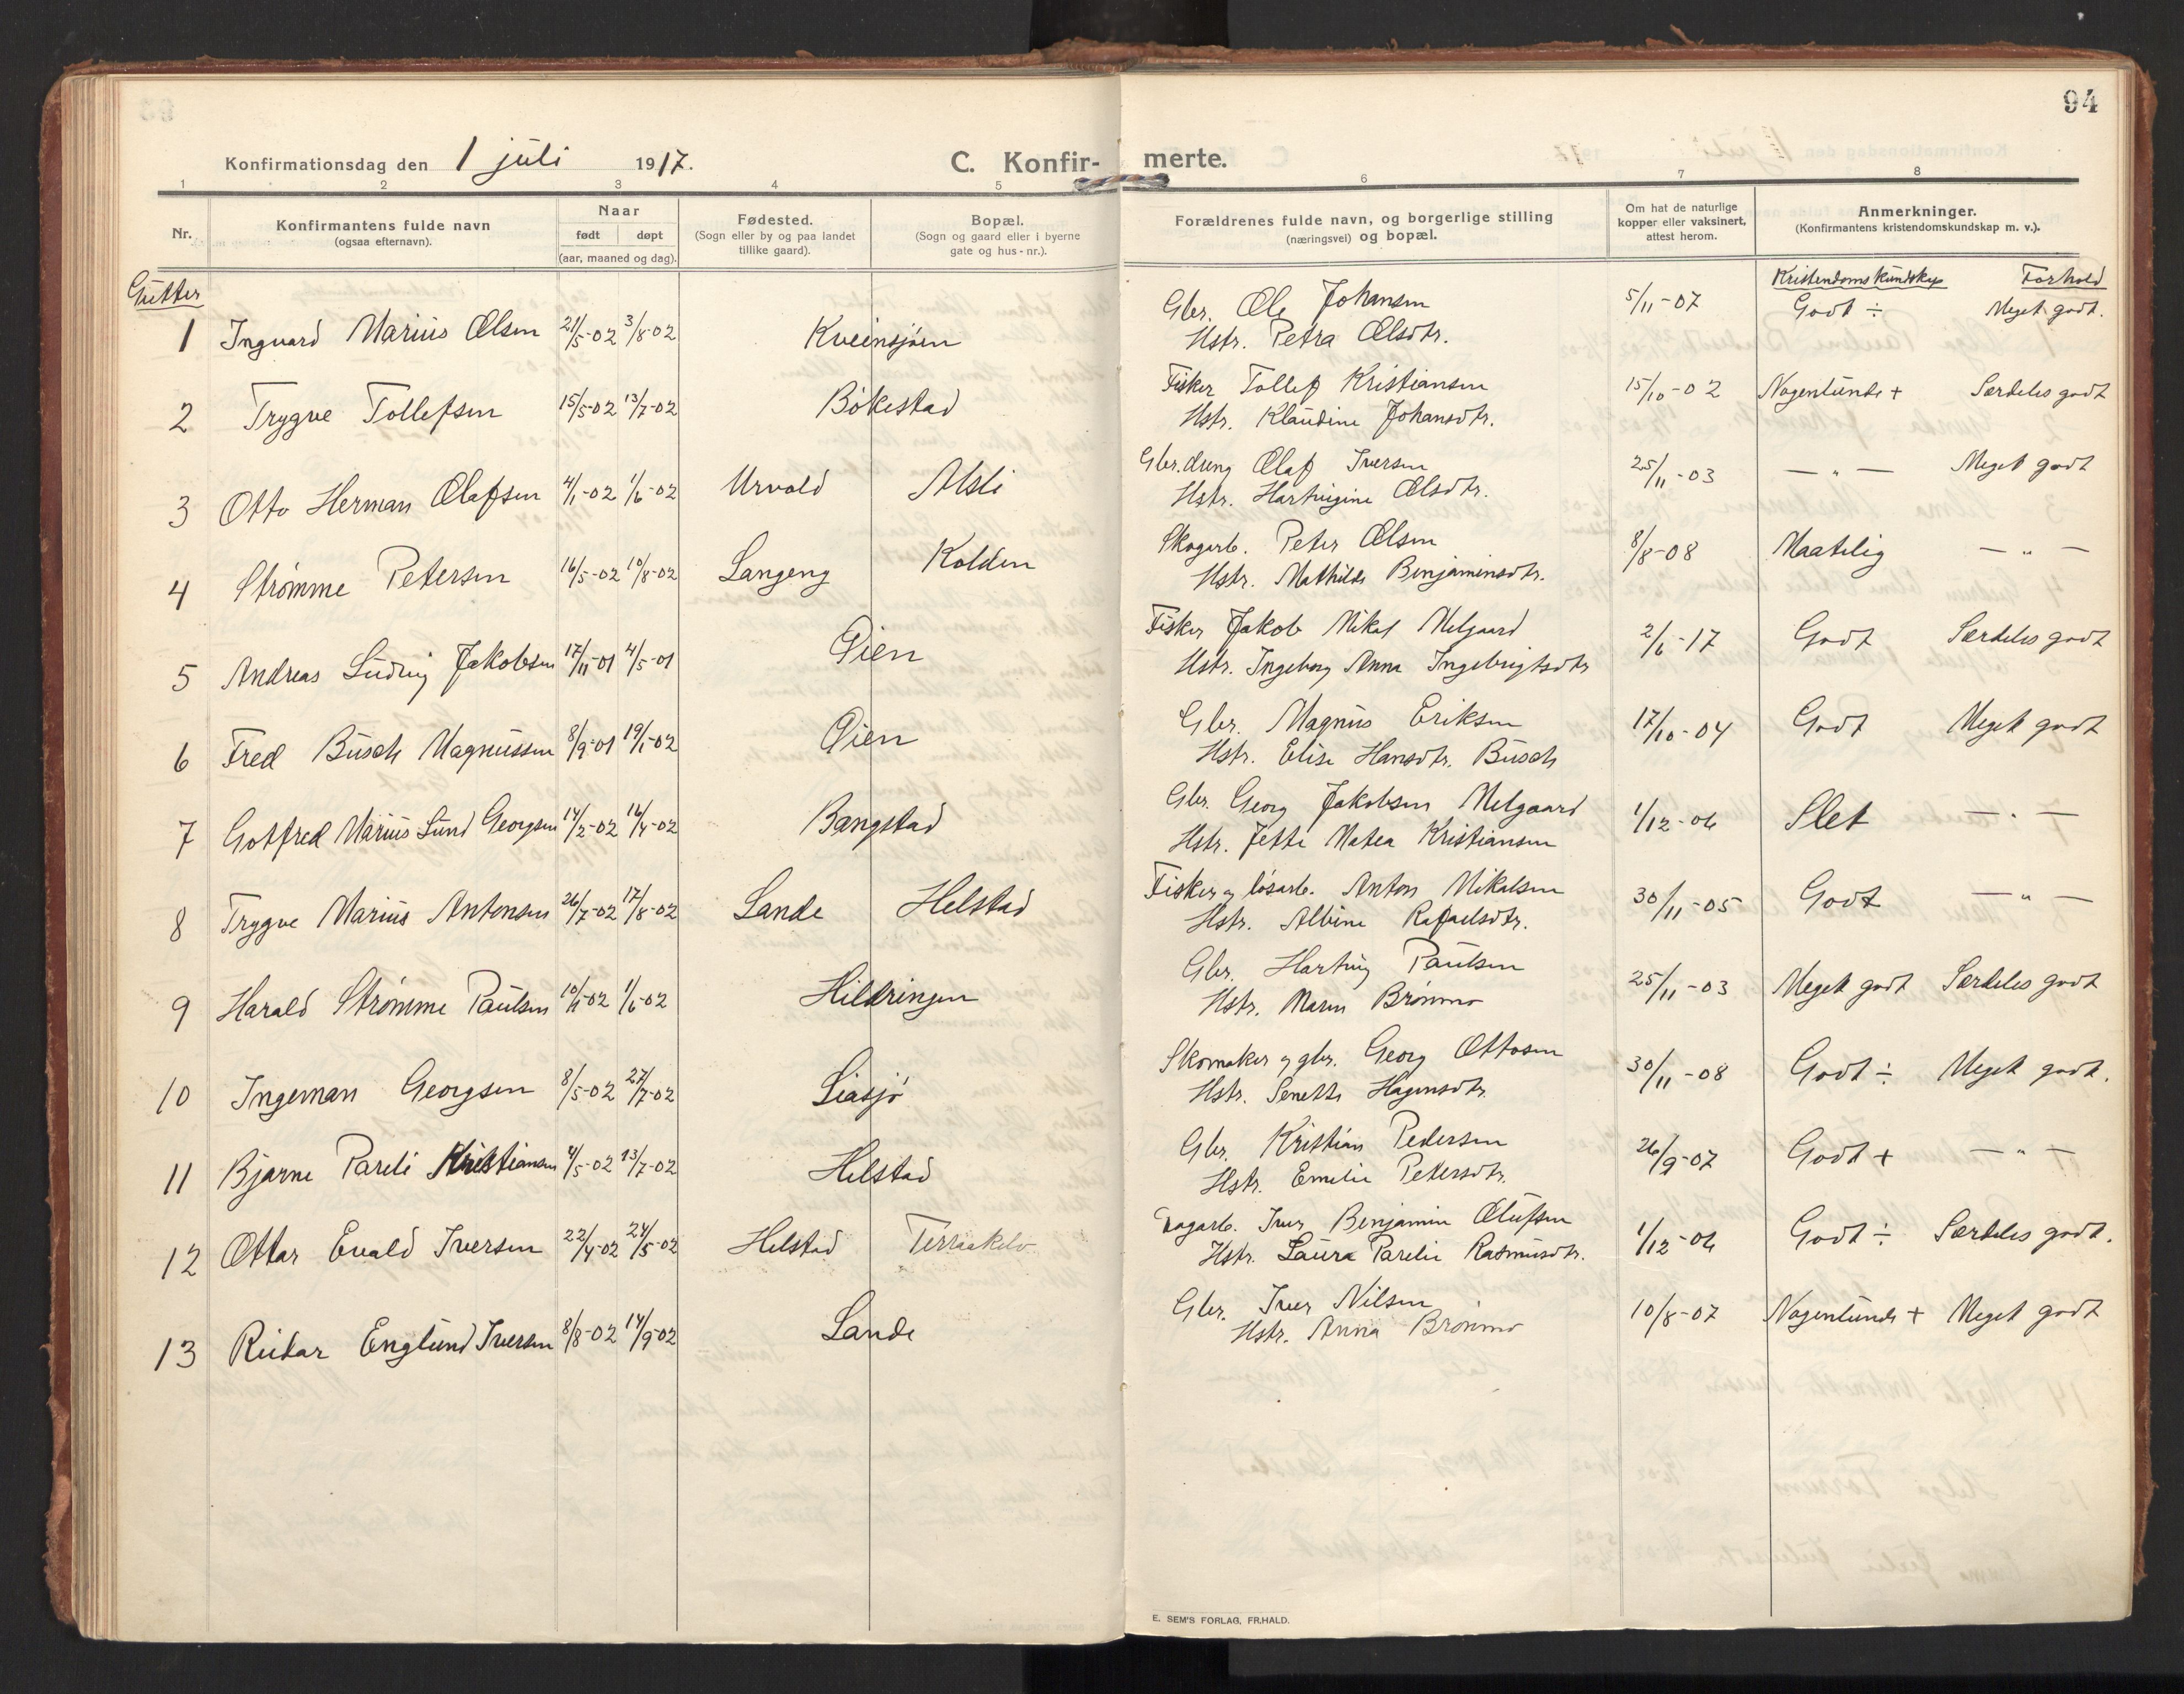 94
Konfirmationsdag den 1 juli 1917.
C. Konfir- merte.
1 2 3 4 5 6 7 8
Nr.
Konfirmantens fulde navn
(ogsaa efternavn).
Naar
født døpt
(aar, maaned og dag).
Fødested.
(Sogn eller by og paa landet
tillike gaard).
Bopæl.
(Sogn og gaard eller i byerne
gate og hus-nr.).
Forældrenes fulde navn, og borgerlige stilling
(næringsvei) og bopæl.
Om hat de naturlige
kopper eller vaksinert,
attest herom.
Anmerkninger.
(Konfirmantens kristendomskundskap m. v.).
Gutter
Kristendomskundskap Forhold
1 Ingvard Marius Olsen 21/5-02 3/8-02 Kveinsjøen Gbr. Ole Johansen 5/11-07 Godt ÷ Meget godt.
Hstr. Petra Olsdtr.
2 Trygve Tollefsen 15/5-02 13/7-02 Bökestad Fisker Tollef Kristiansen 15/10-02 Nogenlunde + Særdeles godt
Hstr. Klaudine Johansdtr.
3 Otto Herman Olafsen 4/1-02 1/6-02 Urvold Alsli Gbr.dreng Olaf Iversen 25/11-03 — " — Meget godt
Hstr. Hartvigine Olsdtr.
4 Strømme Petersen 16/5-02 10/8-02 Langeng Kolden Skogarb. Peter Olsen 8/8-08 Maatelig — " —
Hstr. Mathilde Benjaminsdtr.
5 Andreas Ludvig Jakobsen 17/11-01 4/5-01 Øien Fisker Jakob Mikal Melgaard 2/6-17 Godt Særdeles godt
Hstr. Ingeborg Anna Ingebrigtsdtr
6 Fred Busch Magnussen 8/9-01 19/1-02 Øien Gbr. Magnus Eriksen 17/10-04 Godt Meget godt
Hstr. Elise Hansdtr. Busch
7 Gotfred Marius Lund Georgsen 14/2-02 16/4-02 Bangstad Gbr. Georg Jakobsen Melgaard 1/12-06 Slet — " —
Hstr. Jette Matea Kristiansen
8 Trygve Marius Antonsen 26/7-02 17/8-02 Lande Helstad Fisker og løsarb. Anton Mikalsen 30/11-05 Godt — " —
Hstr. Albine Rafaelsdtr.
9 Harald Strømme Paulsen 1/6-02 Hildringen Gbr. Hartvig Paulsen 25/11-03 Meget godt Særdeles godt
Hstr. Maren Brønmo
10 Ingeman Georgsen 8/5-02 27/7-02 Liasjö Skomaker og gbr. Georg Ottosen 30/11-08 Godt ÷ Meget godt.
Hstr. Senette Hagensdtr.
11 Bjarne Pareli Kristiansen 4/5-02 13/7-02 Helstad Gbr. Kristian Pedersen 26/9-07 Godt + — " —
Hstr. Emelie Petersdtr.
12 Ottar Evald Iversen 22/4-02 24/5-02 Helstad Terraakelv Dagarb. Iver Benjamin Olufsen 1/12-06 Godt ÷ Særdeles godt.
Hstr. Laura Parelie Rasmusdtr.
13 Reidar Englund Iversen 8/8-02 14/9-02 Lande Gbr. Iver Nilsen 10/8-07 Nogenlunde + Meget godt
Hstr. Anna Brønmo
E. SEM'S FORLAG, FR.HALD.